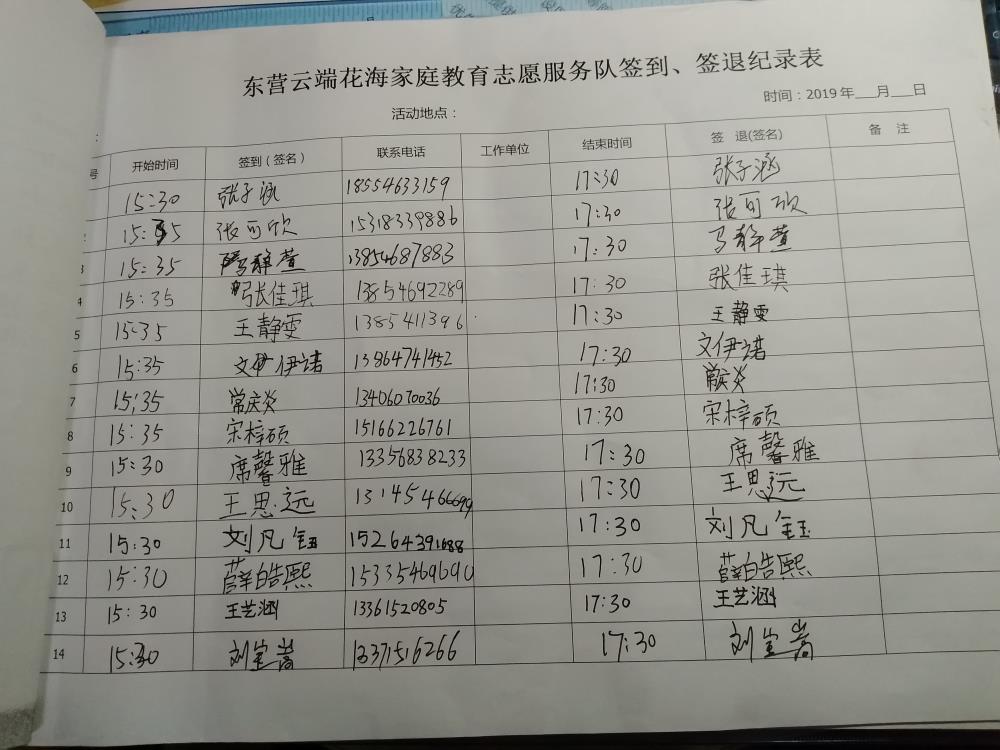 东营云端花海家庭教育志愿服务队签到、签退纪录表
活动地点： 时间：2019年___月___日
号 开始时间 签到（签名） 联系电话 工作单位 结束时间 签 退(签名) 备 注
15:30 张子涵 18554633159 17:30 张子涵
2 15:35 张可欣 15318339886 17:30 张可欣
3 15:35 马静萱 13854687883 17:30 马静萱
4 15:35 张佳琪 13854692289 17:30 张佳琪
5 15:35 王静雯 1385411396 17:30 王静雯
6 15:35 文伊诺 13864741452 17:30 文伊诺
7 15:35 常庆炎 13406070036 17:30 常庆炎
8 15:35 宋梓硕 15166226761 17:30 宋梓硕
9 15:30 席馨雅 13356838233 17:30 席馨雅
10 15:30 王思远 13145466699 17:30 王思远
11 15:30 刘凡钰 15264391688 17:30 刘凡钰
12 15:30 薛皓熙 15335469690 17:30 薛皓熙
13 15:30 王艺涵 13361520805 17:30 王艺涵
14 15:30 刘宝嵩 13371516266 17:30 刘宝嵩